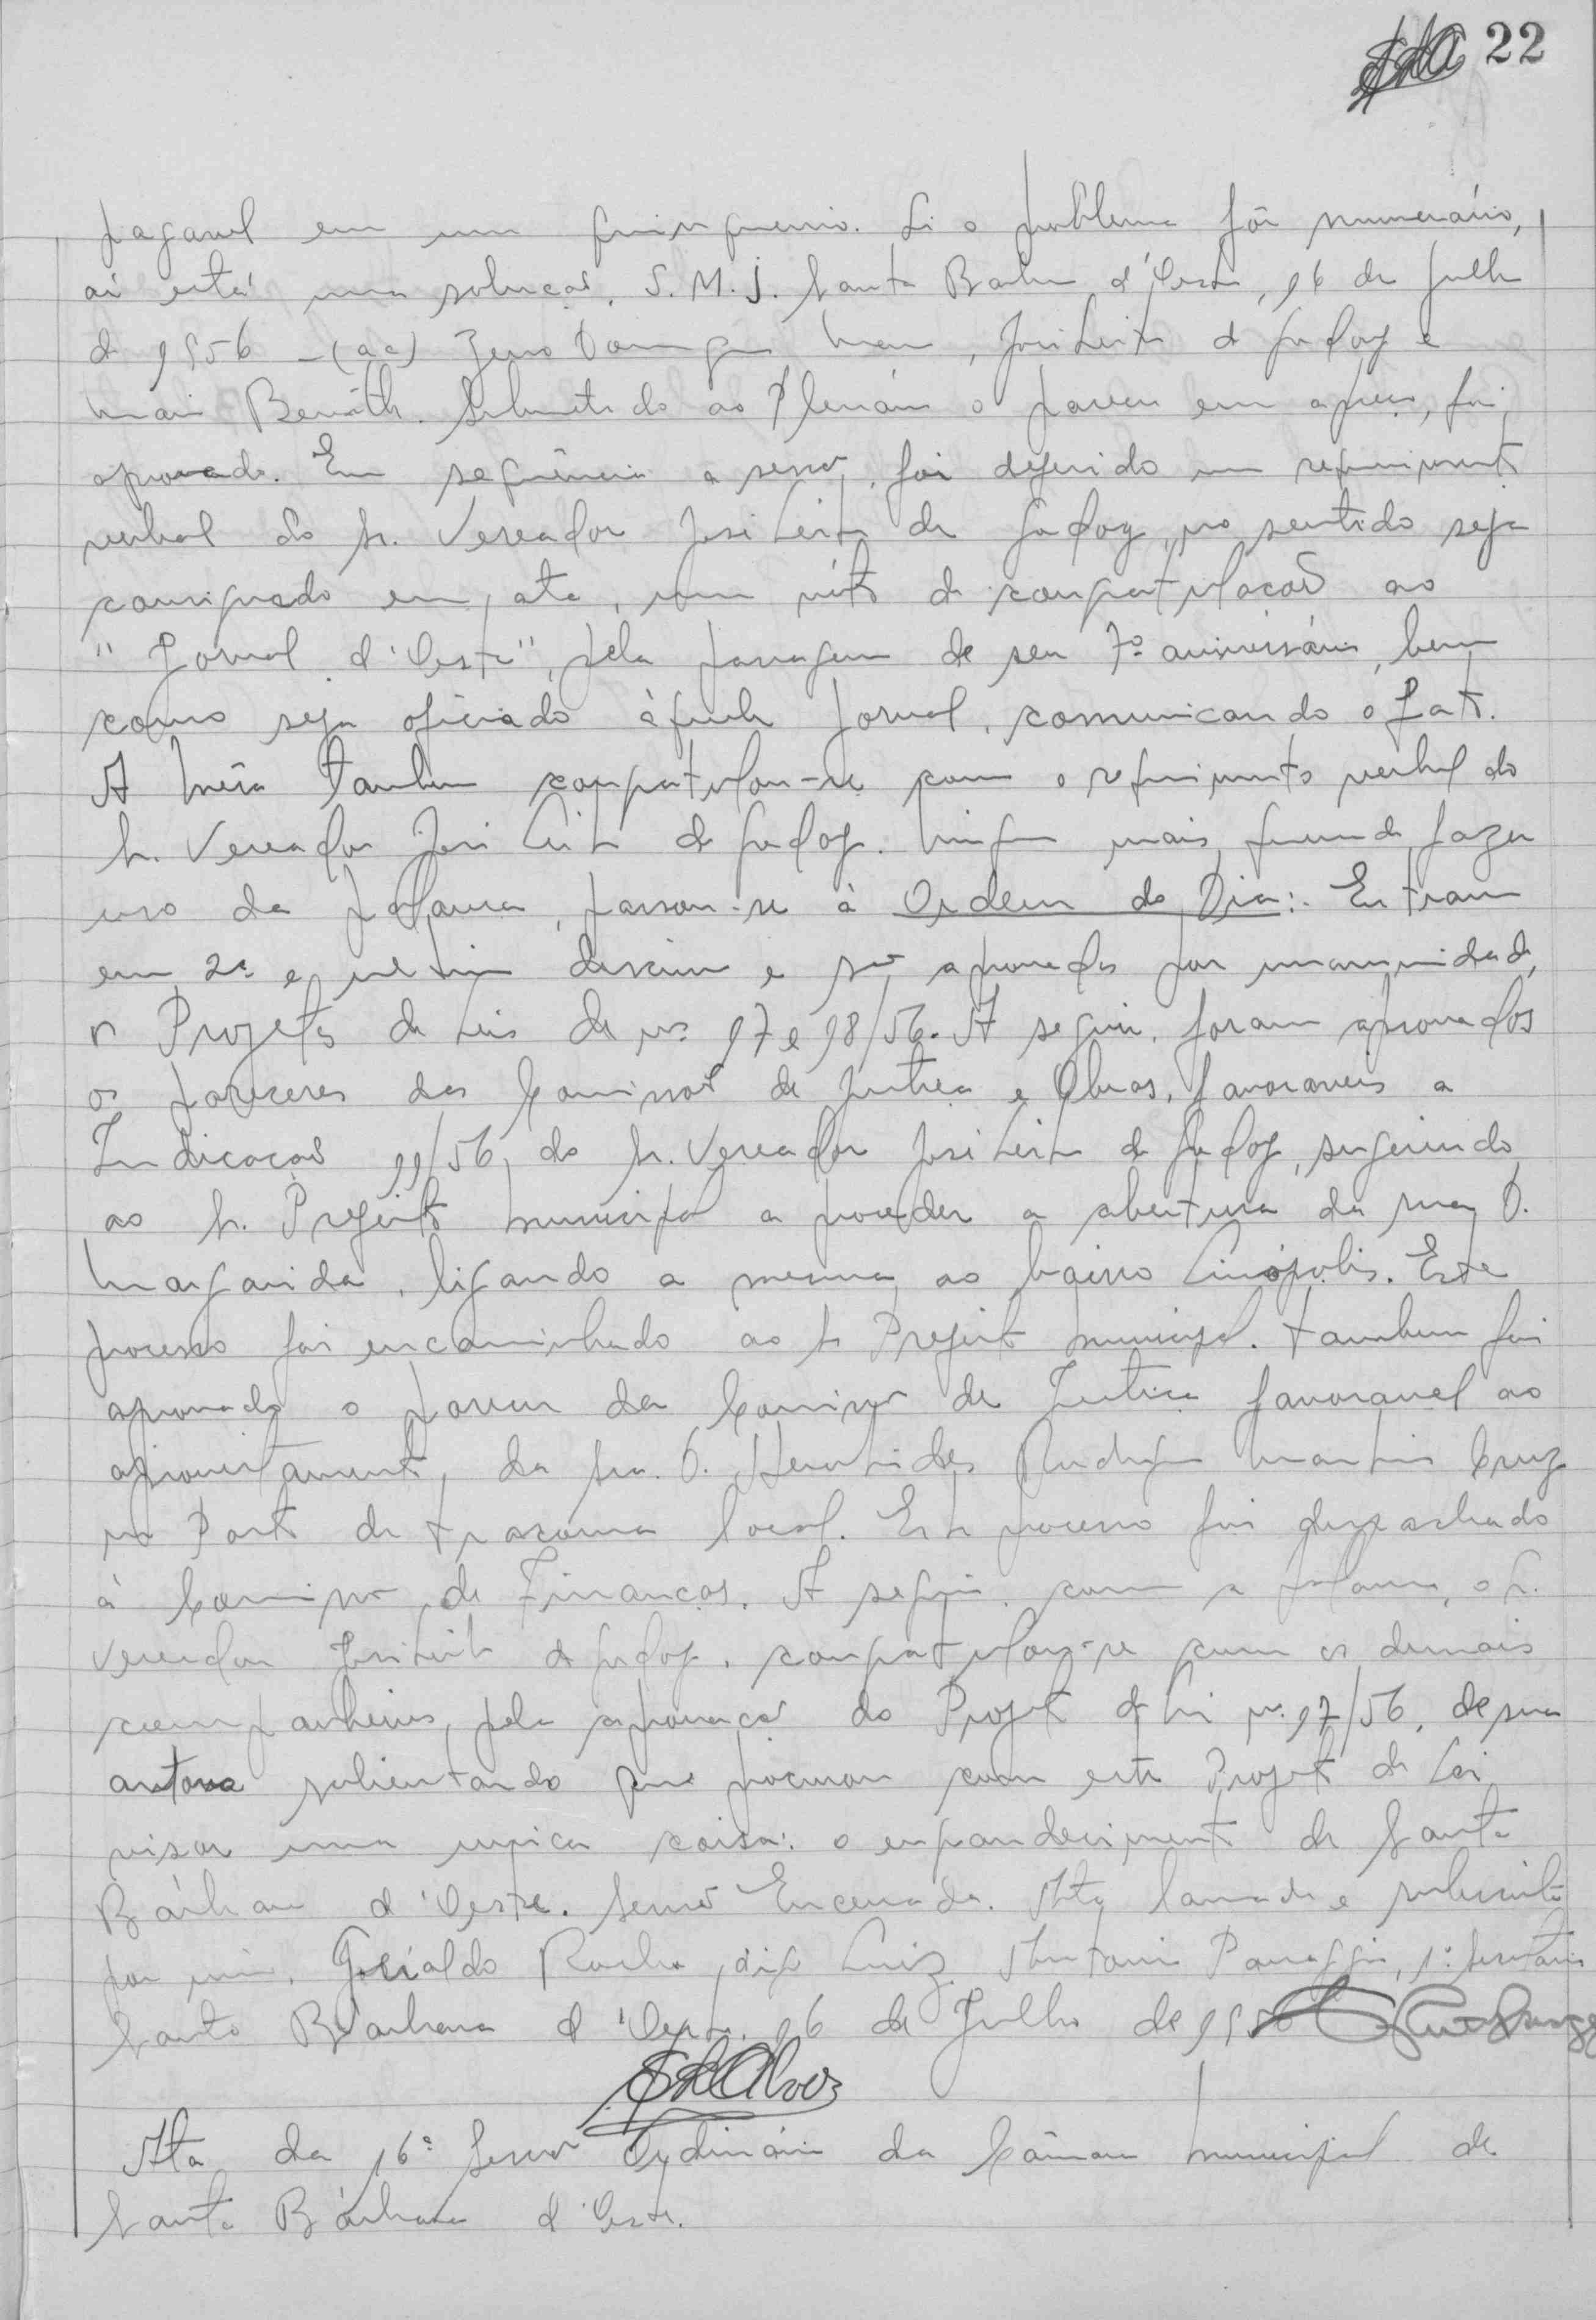 22
pagavel em um quinquenio. Si o problema fôr numerário,
aí está uma solução. S.M.J. Santa Barbara d'Oeste, 16 de Julho
de 1956 - (aa) Zeno Domingues Maia, José Leite de Godoy e
Benith. Submetido ao Plenário o parecer em apreço, foi
aprovado. Em sequência a sessão, foi deferido um requerimento
verbal do Sr. Vereador José Leite de Godoy, no sentido seja
consignado em ata, um voto de congratulação ao
"Jornal d'Oeste", pela passagem de seu 7º aniversário, bem
como seja oficiado àquele jornal, comunicando o fato.
A Mêsa tambem congratulou-se com o requerimento verbal do
Sr. Vereador José Leite de Godoy. Ninguem mais querendo fazer
uso da palavra, passou-se à Ordem do Dia:- Entram
em 2ª e ultima discussão e são aprovados por unanimidade,
os Projetos de Leis de nº 17 e 18/56. A seguir, foram aprovados
os pareceres das Comissões de Justiça e Obras, favoraveis a
Indicação 11/56, do Sr. Vereador José Leite de Godoy, sugerindo
ao Sr. Prefeito Municipal a proceder a abertura da rua D.
Margarida, ligando a mesma ao bairro Linópolis. Este
processo foi encaminhado ao Sr Prefeito Municipal. Tambem foi
aprovado o parecer da Comissão de Justiça favoravel ao
aproveitamento, da Sra. D. Rodrigues Martins Cruz
no Posto de tracoma local. Este processo foi despachado
à Comissão de Finanças. A seguir, com a palavra, o Sr.
Vereador José Leite de Godoy, congratulou-se com os demais
companheiros, pela aprovação do Projeto de Lei nº 17/56, de sua
autoria salientando que procurou com este Projeto de Lei
visar uma unica coisa: o engrandecimento de Santa
Bárbara d'Oeste. Sessão Encerrada. Ata lavrada e subscrita
por mim, Geraldo Rocha, digo Luiz Antonio Panaggio, 1º Secretário
Santa Bárbara d'Oeste, 16 de Julho de 1956
Ata da 16ª Sessão Ordinária da Câmara Municipal de
Santa Bárbara d'Oeste.